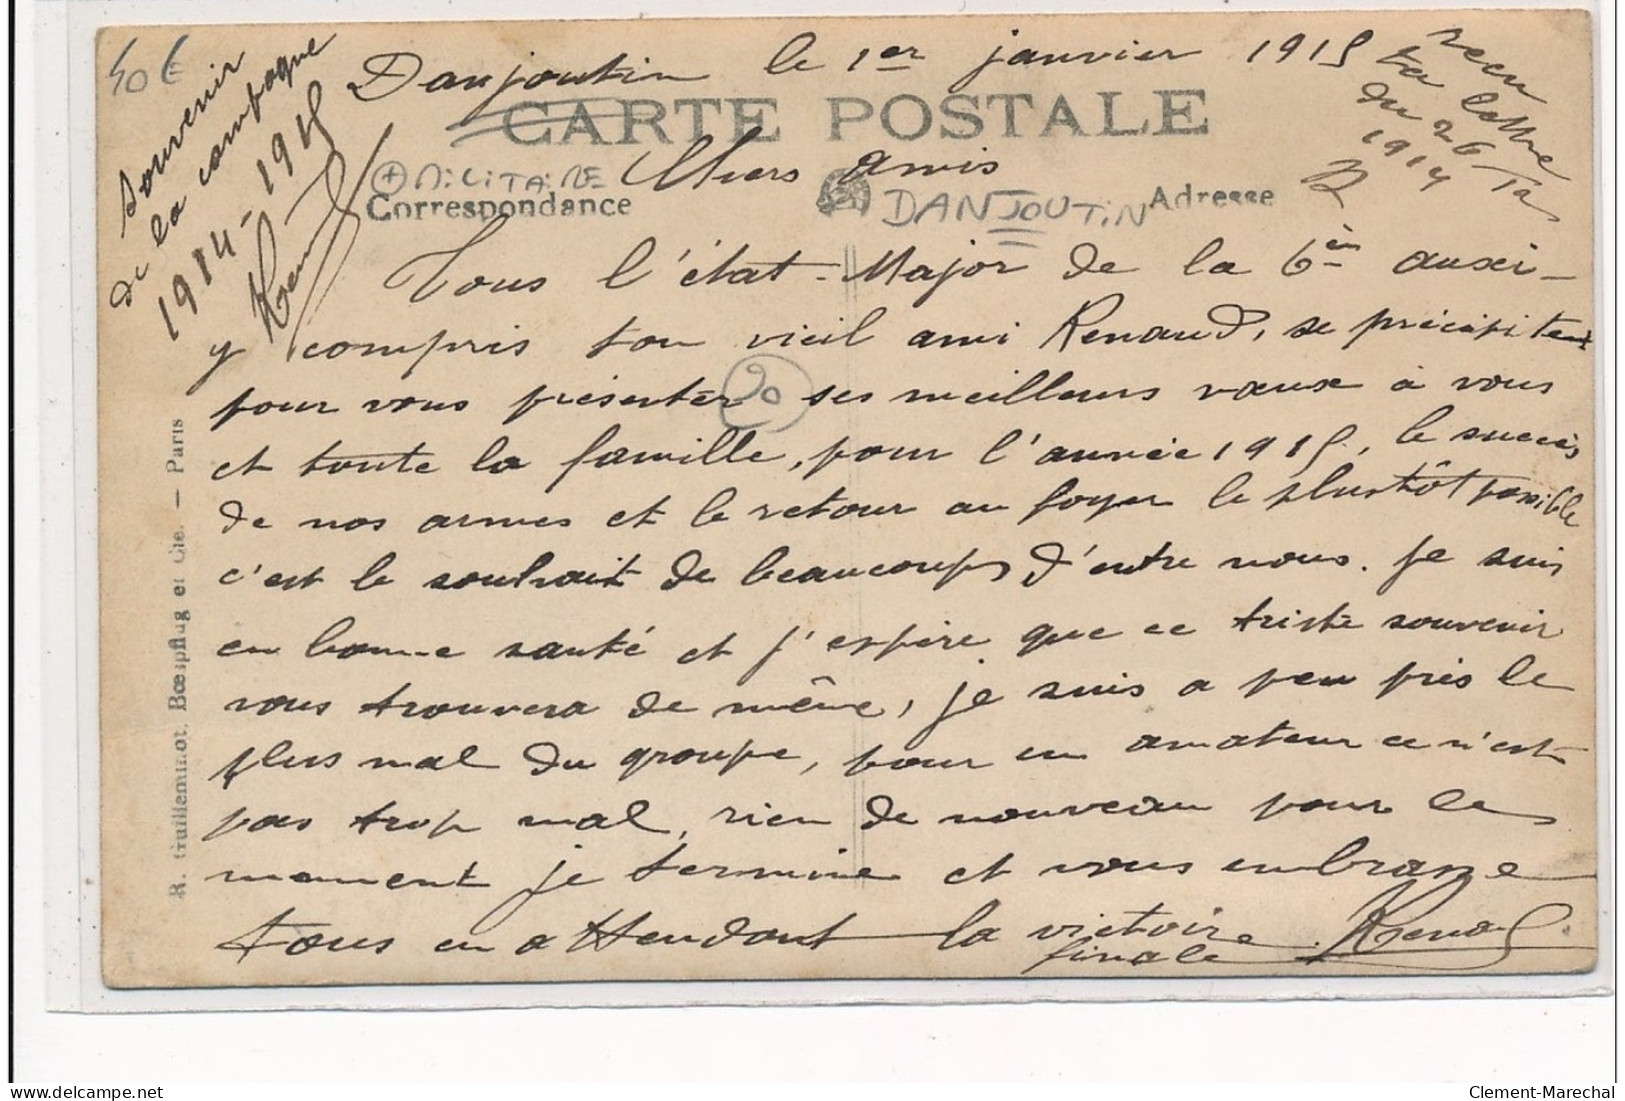 40€
Souvenir
de la campagne
1914-1915
Renaud
Danjoutin le 1er janvier 1915
recu
ta lettre
du 26
1914
R
CARTE POSTALE
MILITAIRE
Chers amis
Correspondance
DANJOUTIN
Adresse
Tous l'état-Major de la 6è auxi-
y compris ton vieil ami Renaud, se précipitent
pour vous présenter ses meilleurs vœux à vous
20
et toute la famille, pour l'année 1915, le succès
de nos armes et le retour au foyer le plustôt possible
c'est le souhait de beaucoups d'entre nous. Je suis
en bonne santé et j'espère que ce triste souvenir
vous trouvera de même, je suis a peu près le
plus mal du groupe, pour un amateur ce n'est
pas trop mal, rien de nouveau pour le
moment je termine et vous embrasse
tous en attendant la victoire
finale Renaud
R. Guilleminot, Bœspflug et Cie. — Paris
Clement-Marechal
www.delcampe.net